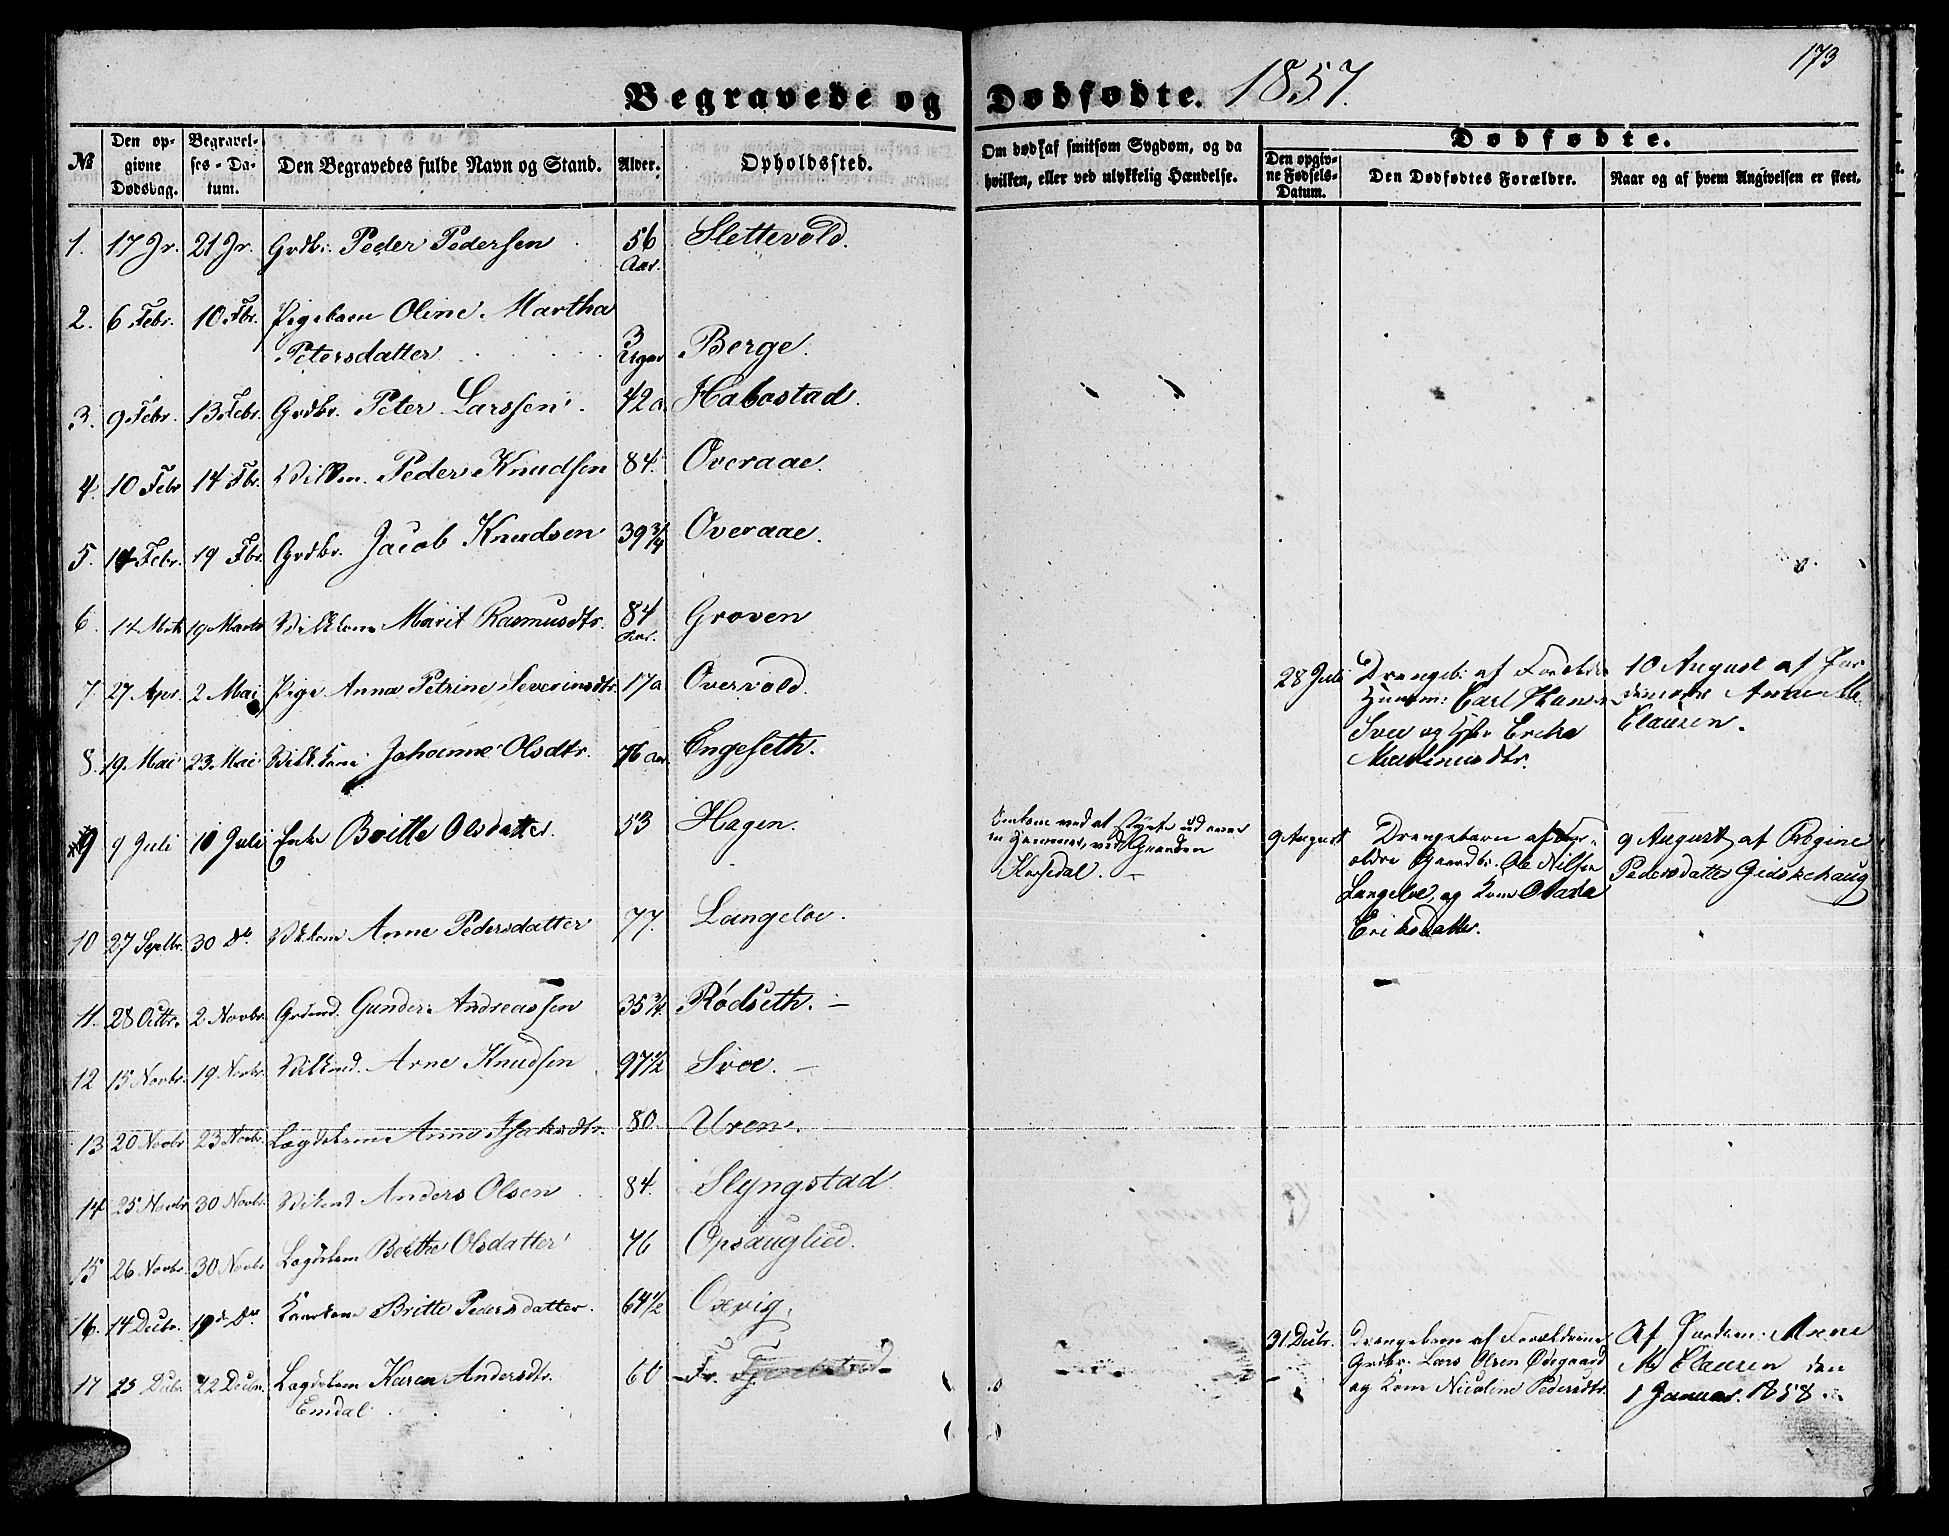 173
Begravede og Dødfødte. 1857.
№
Den opgivne Dødsdag.
Begravelses-Datum.
Den Begravedes fulde Navn og Stand.
Alder.
Opholdssted.
Om død af smitsom Sygdom, og da hvilken, eller ved ulykkelig Hændelse.
Dødfødte.
Den opgivne Fødsels-Datum.
Den Dødfødtes Forældre.
Naar og af hvem Angivelsen er skeet.
1. 17 Jr. 21 Jr. Grdbr. Peder Pedersen 56 Aar. Slettevold.
2. 6 Febr. 10 Fbr. Pigebarn Oline Martha
Petersdatter 3 Uger Berge.
3. 9 Febr. 13 Febr. Grdbr. Peter Larssen 42 a. Habostad.
4. 10 Febr 14 Fbr. Vilkm. Peder Knudsen 84. Overaae.
5. 14 Febr. 19 Fbr. Grdbr. Jacob Knudsen 39 3/4 Overaae.
6. 14 Mrts 19 Marts Vilkkone Marit Rasmusdtr. 84 Aar. Groven
7. 27 Apr. 2 Mai Pige Anna Petrine Severinsdtr. 17 a Overvold.
28 Juli Drangeb. af Forældre
Huusm: Carl Hansen
Svee og Hstr
Martinusdtr.
10 August af Jor
demoder Anne M.
Clausen.
8. 19. Mai 23. Mai Vilkkone Johanne Olsdtr. 76 Aar. Engeseth.
9 9 Juli 10 Juli Enke Britte Olsdatter. 53 Hagen.
Omkom ved at styrte ud over
en Hammer, ved Gaarden
9 August Drangebarn af For-
ældre Gaardbr. Ole Nilsen
Langeloe, og Kone
Eriksdatter.
9 August af Regine
Pedersdatter Gidskehaug
10 27 Septbr. 30 do Vilkkone Anne Pedersdatter 77. Langeloe.
11. 28 Octbr. 2 Novbr. Grdmd. Gunder Andreassen 35 3/4. Rødseth. —
12 15 Novbr. 19 Novbr. Vilkmd. Arne Knudsen 97 1/2 Svee. —
13 20 Novbr 23 Novbr. Lægdskone Anne Isaksdtr. 80. Uren.
14 25 Novbr 30 Novbr. Vilkmd Anders Olsen 84. Slyngstad
15 26 Novbr. 30 Novbr Lægdskone Berthe Olsdatter 76 Opsauglied.
16. 14 Decbr. 19de do Kaarkone Britte Pedersdatter. 64 1/2 Oxvig.
31 Decbr. Drangebarn af Forældrene
Grdbr. Lars Olsen Ødegaard
og Kone Nicoline Pedersdtr.
Af Jordem: Anne
M. Clausen den
1 Januar. 1858.
17 15 Decbr 22 Decbr. Lægdskone Karen Andersdtr. 60 Fr.
Emdal